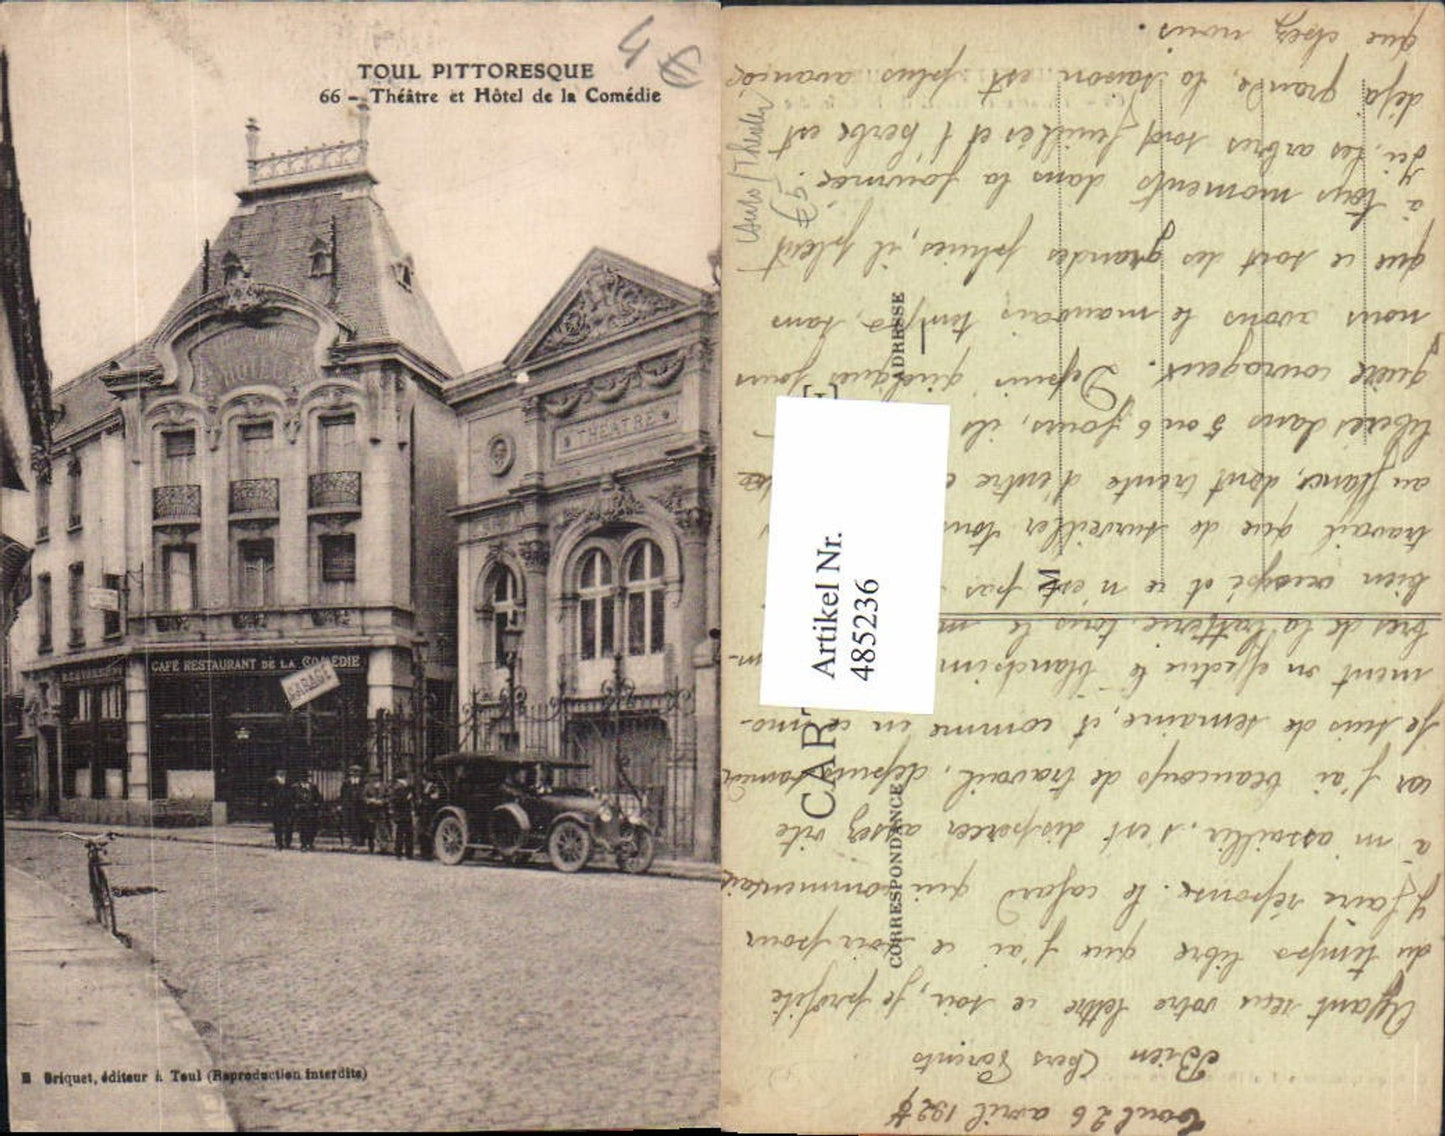 TOUL PITTORESQUE
66 - Théâtre et Hôtel de la Comédie
4 €
HÔTEL
THEATRE
CAFÉ RESTAURANT DE LA COMÉDIE
GARAGE
B Briquet, éditeur à Toul (Reproduction interdite)
Auto/Theater
€5
CAR
CORRESPONDANCE
ADRESSE
M
Artikel Nr.
485236
Toul 26 avril 192
Bien Chers Parents
Ayant reçu votre lettre ce soir, je profite
du temps libre que j'ai ce soir pour
y faire réponse. le cafard qui commençait
à m'assaillir, s'est disperser assez vite
car j'ai beaucoup de travail, depuis samedi
je suis de semaine, et comme en ce mo-
ment on effectue le blanchim
bres de la batterie, tous le m
bien occupé et ce n'est pas
travail que de surveiller tous
au flanc, dont trente d'entre e
libérés dans 5 ou 6 jours, ils
guère courageux. Depuis quelques jours
nous avons le mauvais temps, sans
que ce sont des grandes pluies, il pleut
à tous moments dans la journée.
Ici, les arbres sont feuillés et l'herbe est
déjà grande, la saison est plus avancée
que chez nous.